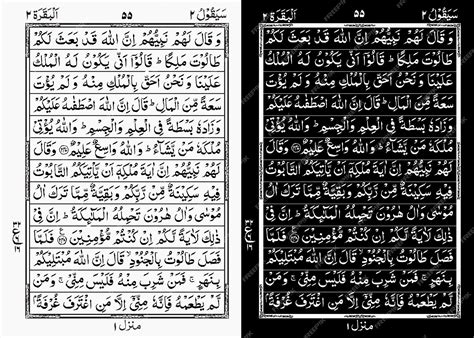 سَيَقُوْلُ ٢ ٥٥ اَلْبَقَرَة ٢
وَ قَالَ لَهُمْ نَبِيُّهُمْ اِنَّ اللّٰهَ قَدْ بَعَثَ لَكُمْ
طَالُوْتَ مَلِكًا ؕ قَالُوْۤا اَنّٰى يَكُوْنُ لَهُ الْمُلْكُ
عَلَيْنَا وَ نَحْنُ اَحَقُّ بِالْمُلْكِ مِنْهُ وَ لَمْ يُؤْتَ
سَعَةً مِّنَ الْمَالِ ؕ قَالَ اِنَّ اللّٰهَ اصْطَفٰىهُ عَلَيْكُمْ
وَ زَادَهٗ بَسْطَةً فِي الْعِلْمِ وَ الْجِسْمِ ؕ وَ اللّٰهُ يُؤْتِيْ
مُلْكَهٗ مَنْ يَّشَآءُ ؕ وَ اللّٰهُ وَاسِعٌ عَلِيْمٌ وَ قَالَ
لَهُمْ نَبِيُّهُمْ اِنَّ اٰيَةَ مُلْكِهٖۤ اَنْ يَّاْتِيَكُمُ التَّابُوْتُ
فِيْهِ سَكِيْنَةٌ مِّنْ رَّبِّكُمْ وَ بَقِيَّةٌ مِّمَّا تَرَكَ اٰلُ
مُوْسٰى وَ اٰلُ هٰرُوْنَ تَحْمِلُهُ الْمَلٰٓئِكَةُ ؕ اِنَّ فِيْ
ذٰلِكَ لَاٰيَةً لَّكُمْ اِنْ كُنْتُمْ مُّؤْمِنِيْنَ فَلَمَّا
فَصَلَ طَالُوْتُ بِالْجُنُوْدِ ۙ قَالَ اِنَّ اللّٰهَ مُبْتَلِيْكُمْ
بِنَهَرٍ ۚ فَمَنْ شَرِبَ مِنْهُ فَلَيْسَ مِنِّيْ ۚ وَ مَنْ
لَّمْ يَطْعَمْهُ فَاِنَّهٗ مِنِّيْۤ اِلَّا مَنِ اغْتَرَفَ غُرْفَةًۢ
منزل ١
سَيَقُوْلُ ٢ ٥٥ اَلْبَقَرَة ٢
وَ قَالَ لَهُمْ نَبِيُّهُمْ اِنَّ اللّٰهَ قَدْ بَعَثَ لَكُمْ
طَالُوْتَ مَلِكًا ؕ قَالُوْۤا اَنّٰى يَكُوْنُ لَهُ الْمُلْكُ
عَلَيْنَا وَ نَحْنُ اَحَقُّ بِالْمُلْكِ مِنْهُ وَ لَمْ يُؤْتَ
سَعَةً مِّنَ الْمَالِ ؕ قَالَ اِنَّ اللّٰهَ اصْطَفٰىهُ عَلَيْكُمْ
وَ زَادَهٗ بَسْطَةً فِي الْعِلْمِ وَ الْجِسْمِ ؕ وَ اللّٰهُ يُؤْتِيْ
مُلْكَهٗ مَنْ يَّشَآءُ ؕ وَ اللّٰهُ وَاسِعٌ عَلِيْمٌ وَ قَالَ
لَهُمْ نَبِيُّهُمْ اِنَّ اٰيَةَ مُلْكِهٖۤ اَنْ يَّاْتِيَكُمُ التَّابُوْتُ
فِيْهِ سَكِيْنَةٌ مِّنْ رَّبِّكُمْ وَ بَقِيَّةٌ مِّمَّا تَرَكَ اٰلُ
مُوْسٰى وَ اٰلُ هٰرُوْنَ تَحْمِلُهُ الْمَلٰٓئِكَةُ ؕ اِنَّ فِيْ
ذٰلِكَ لَاٰيَةً لَّكُمْ اِنْ كُنْتُمْ مُّؤْمِنِيْنَ فَلَمَّا
فَصَلَ طَالُوْتُ بِالْجُنُوْدِ ۙ قَالَ اِنَّ اللّٰهَ مُبْتَلِيْكُمْ
بِنَهَرٍ ۚ فَمَنْ شَرِبَ مِنْهُ فَلَيْسَ مِنِّيْ ۚ وَ مَنْ
لَّمْ يَطْعَمْهُ فَاِنَّهٗ مِنِّيْۤ اِلَّا مَنِ اغْتَرَفَ غُرْفَةًۢ
منزل ١